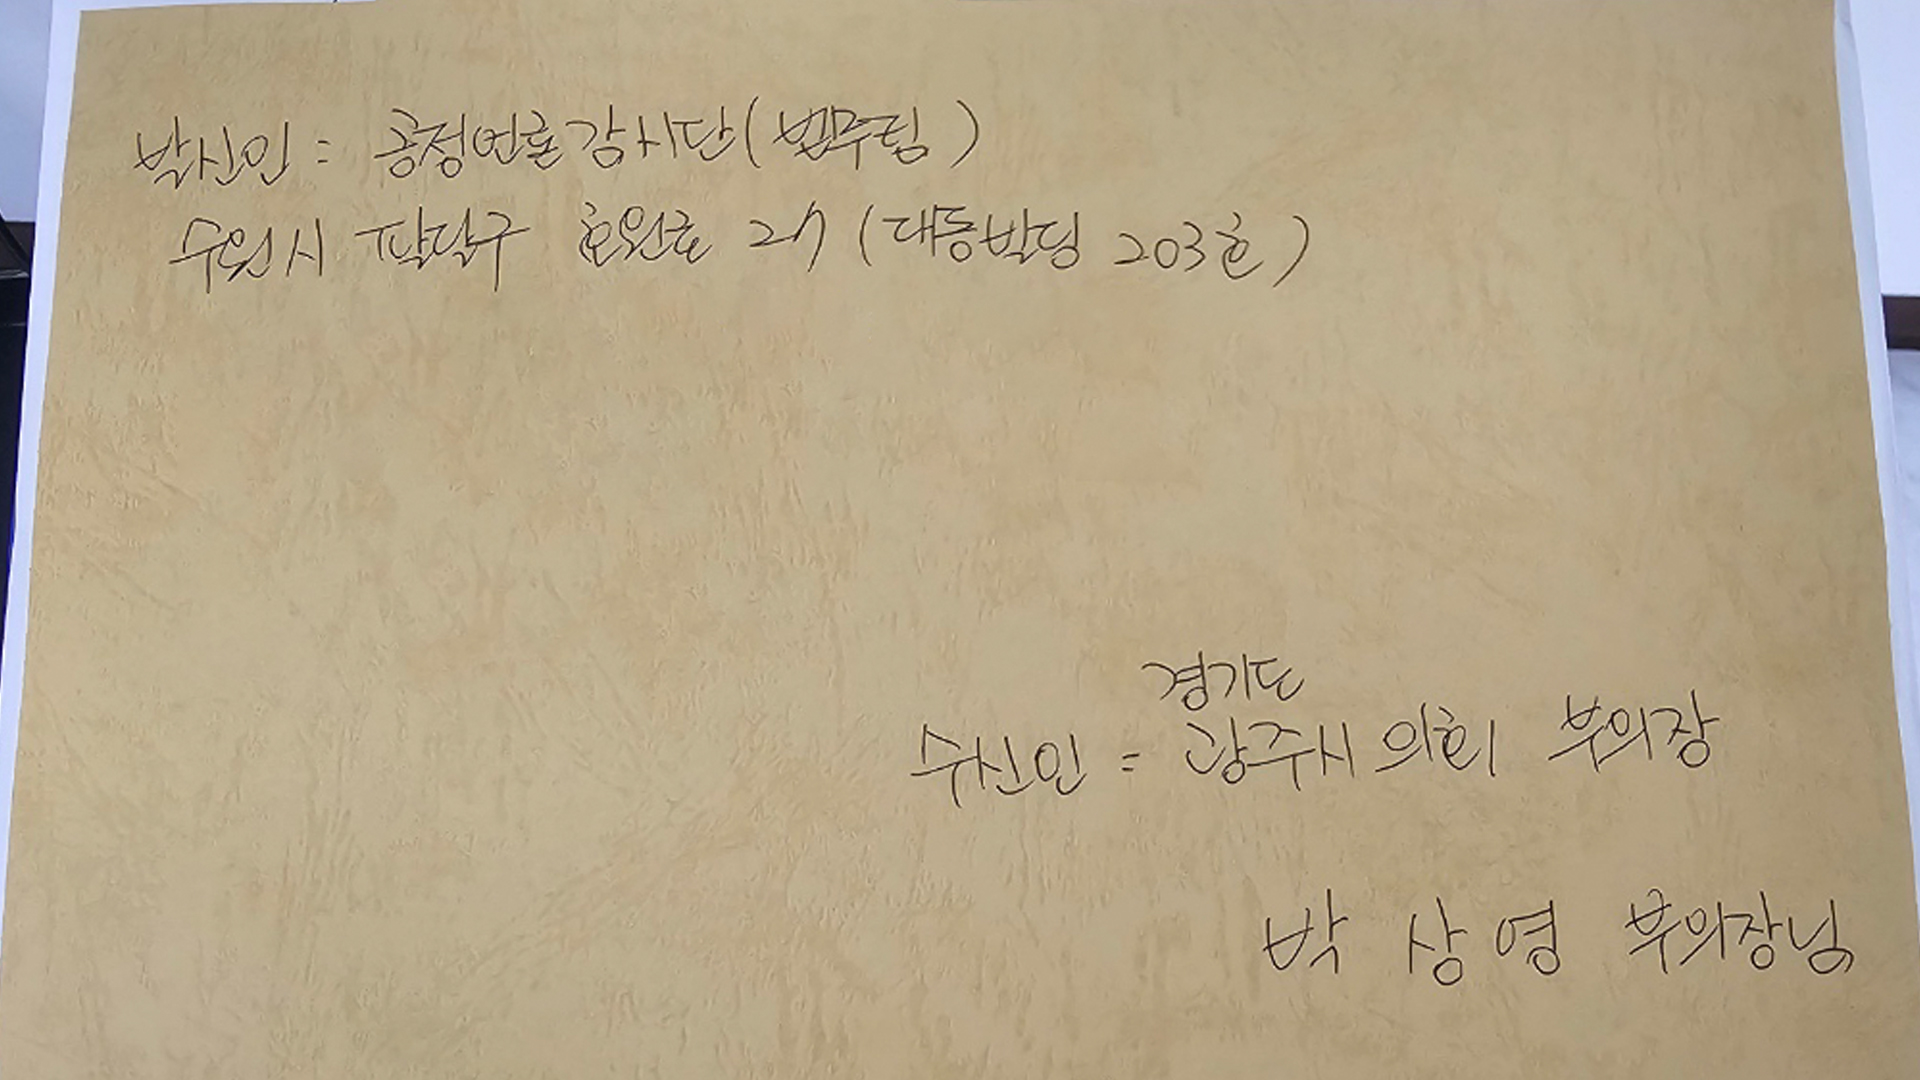 발신인 : 공정언론감시단(법무팀)
수원시 팔달구 효원로 27 (대동빌딩 203호)
경기도
수신인 : 광주시의회 부의장
박상영 부의장님